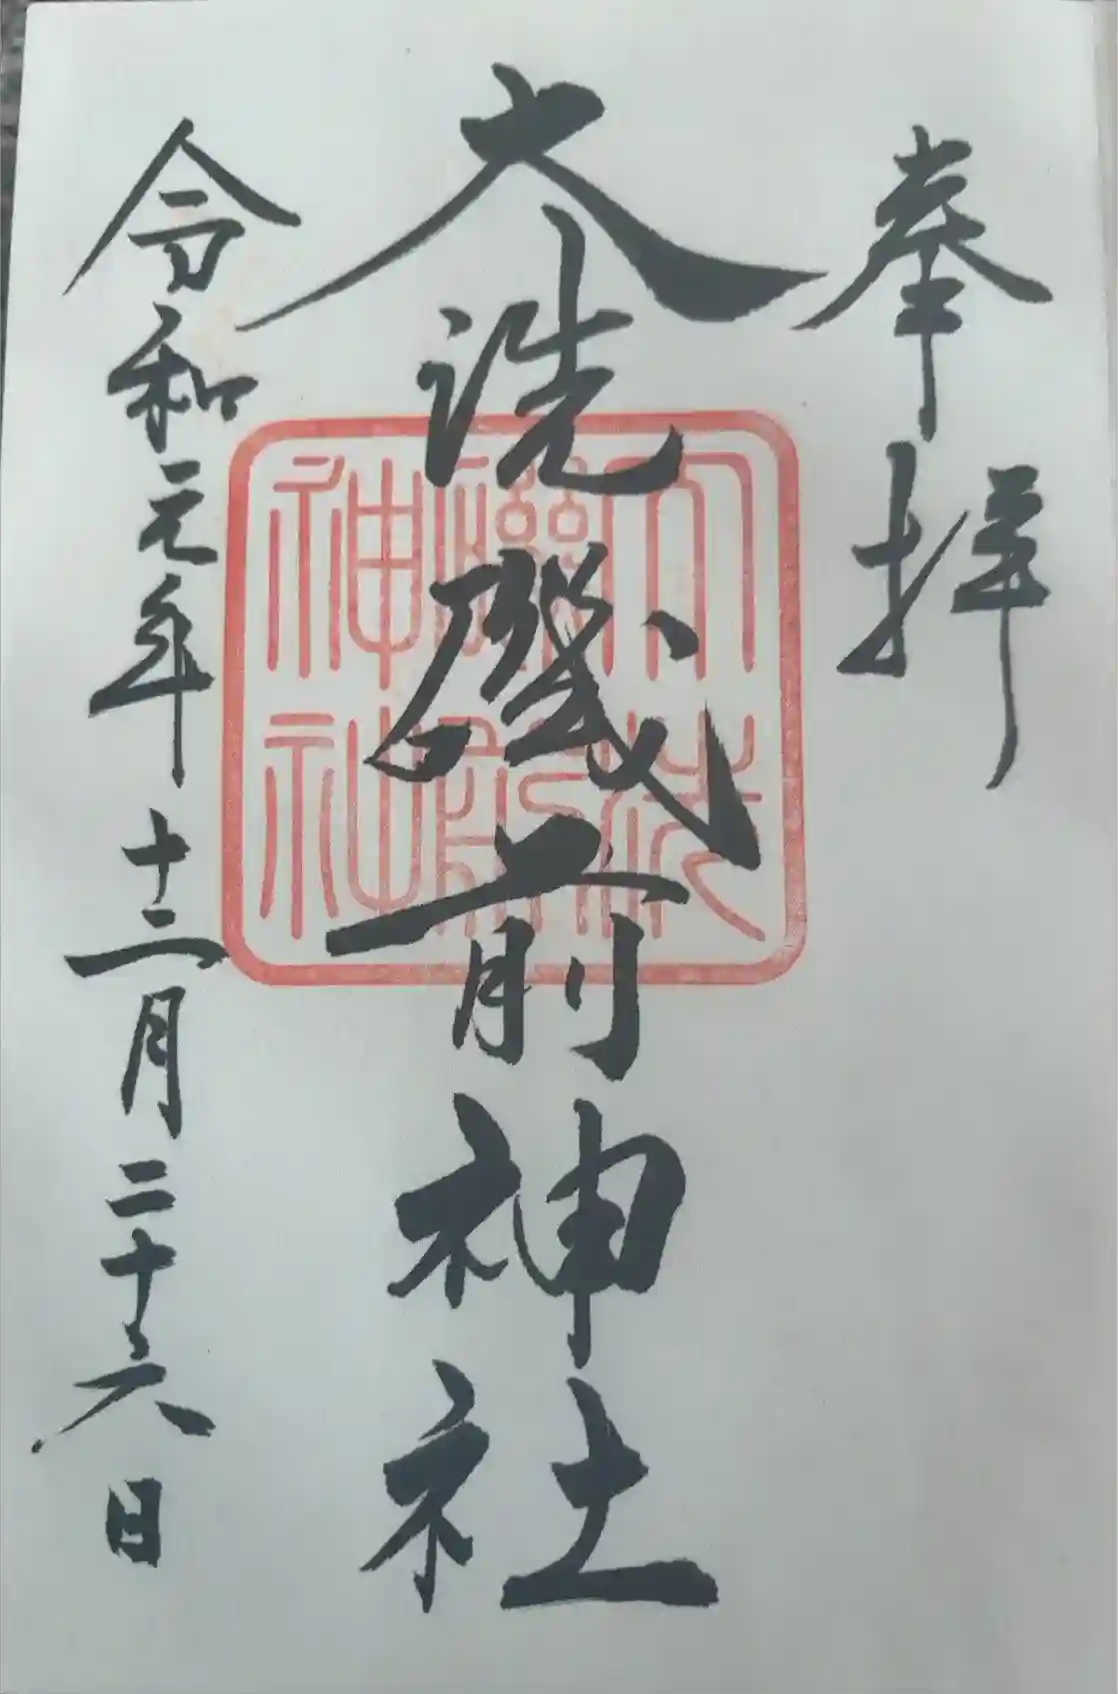 奉拝
大洗磯前神社
令和元年十二月二十六日
大洗
磯前
神社